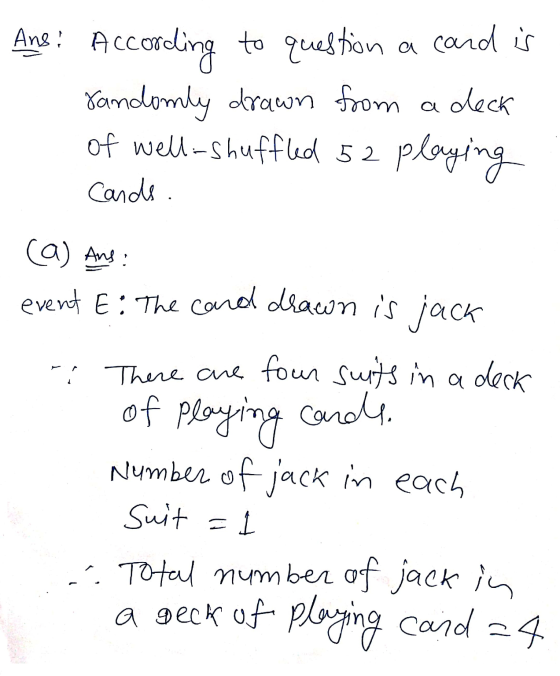 Ans: According to question a card is
randomly drawn from a deck
of well-shuffled 52 playing
Cards.
(a) Ans:
event E: The card drawn is jack
∵ There are four suits in a deck
of playing cards.
Number of jack in each
Suit = 1
∴ Total number of jack in
a deck of playing card = 4